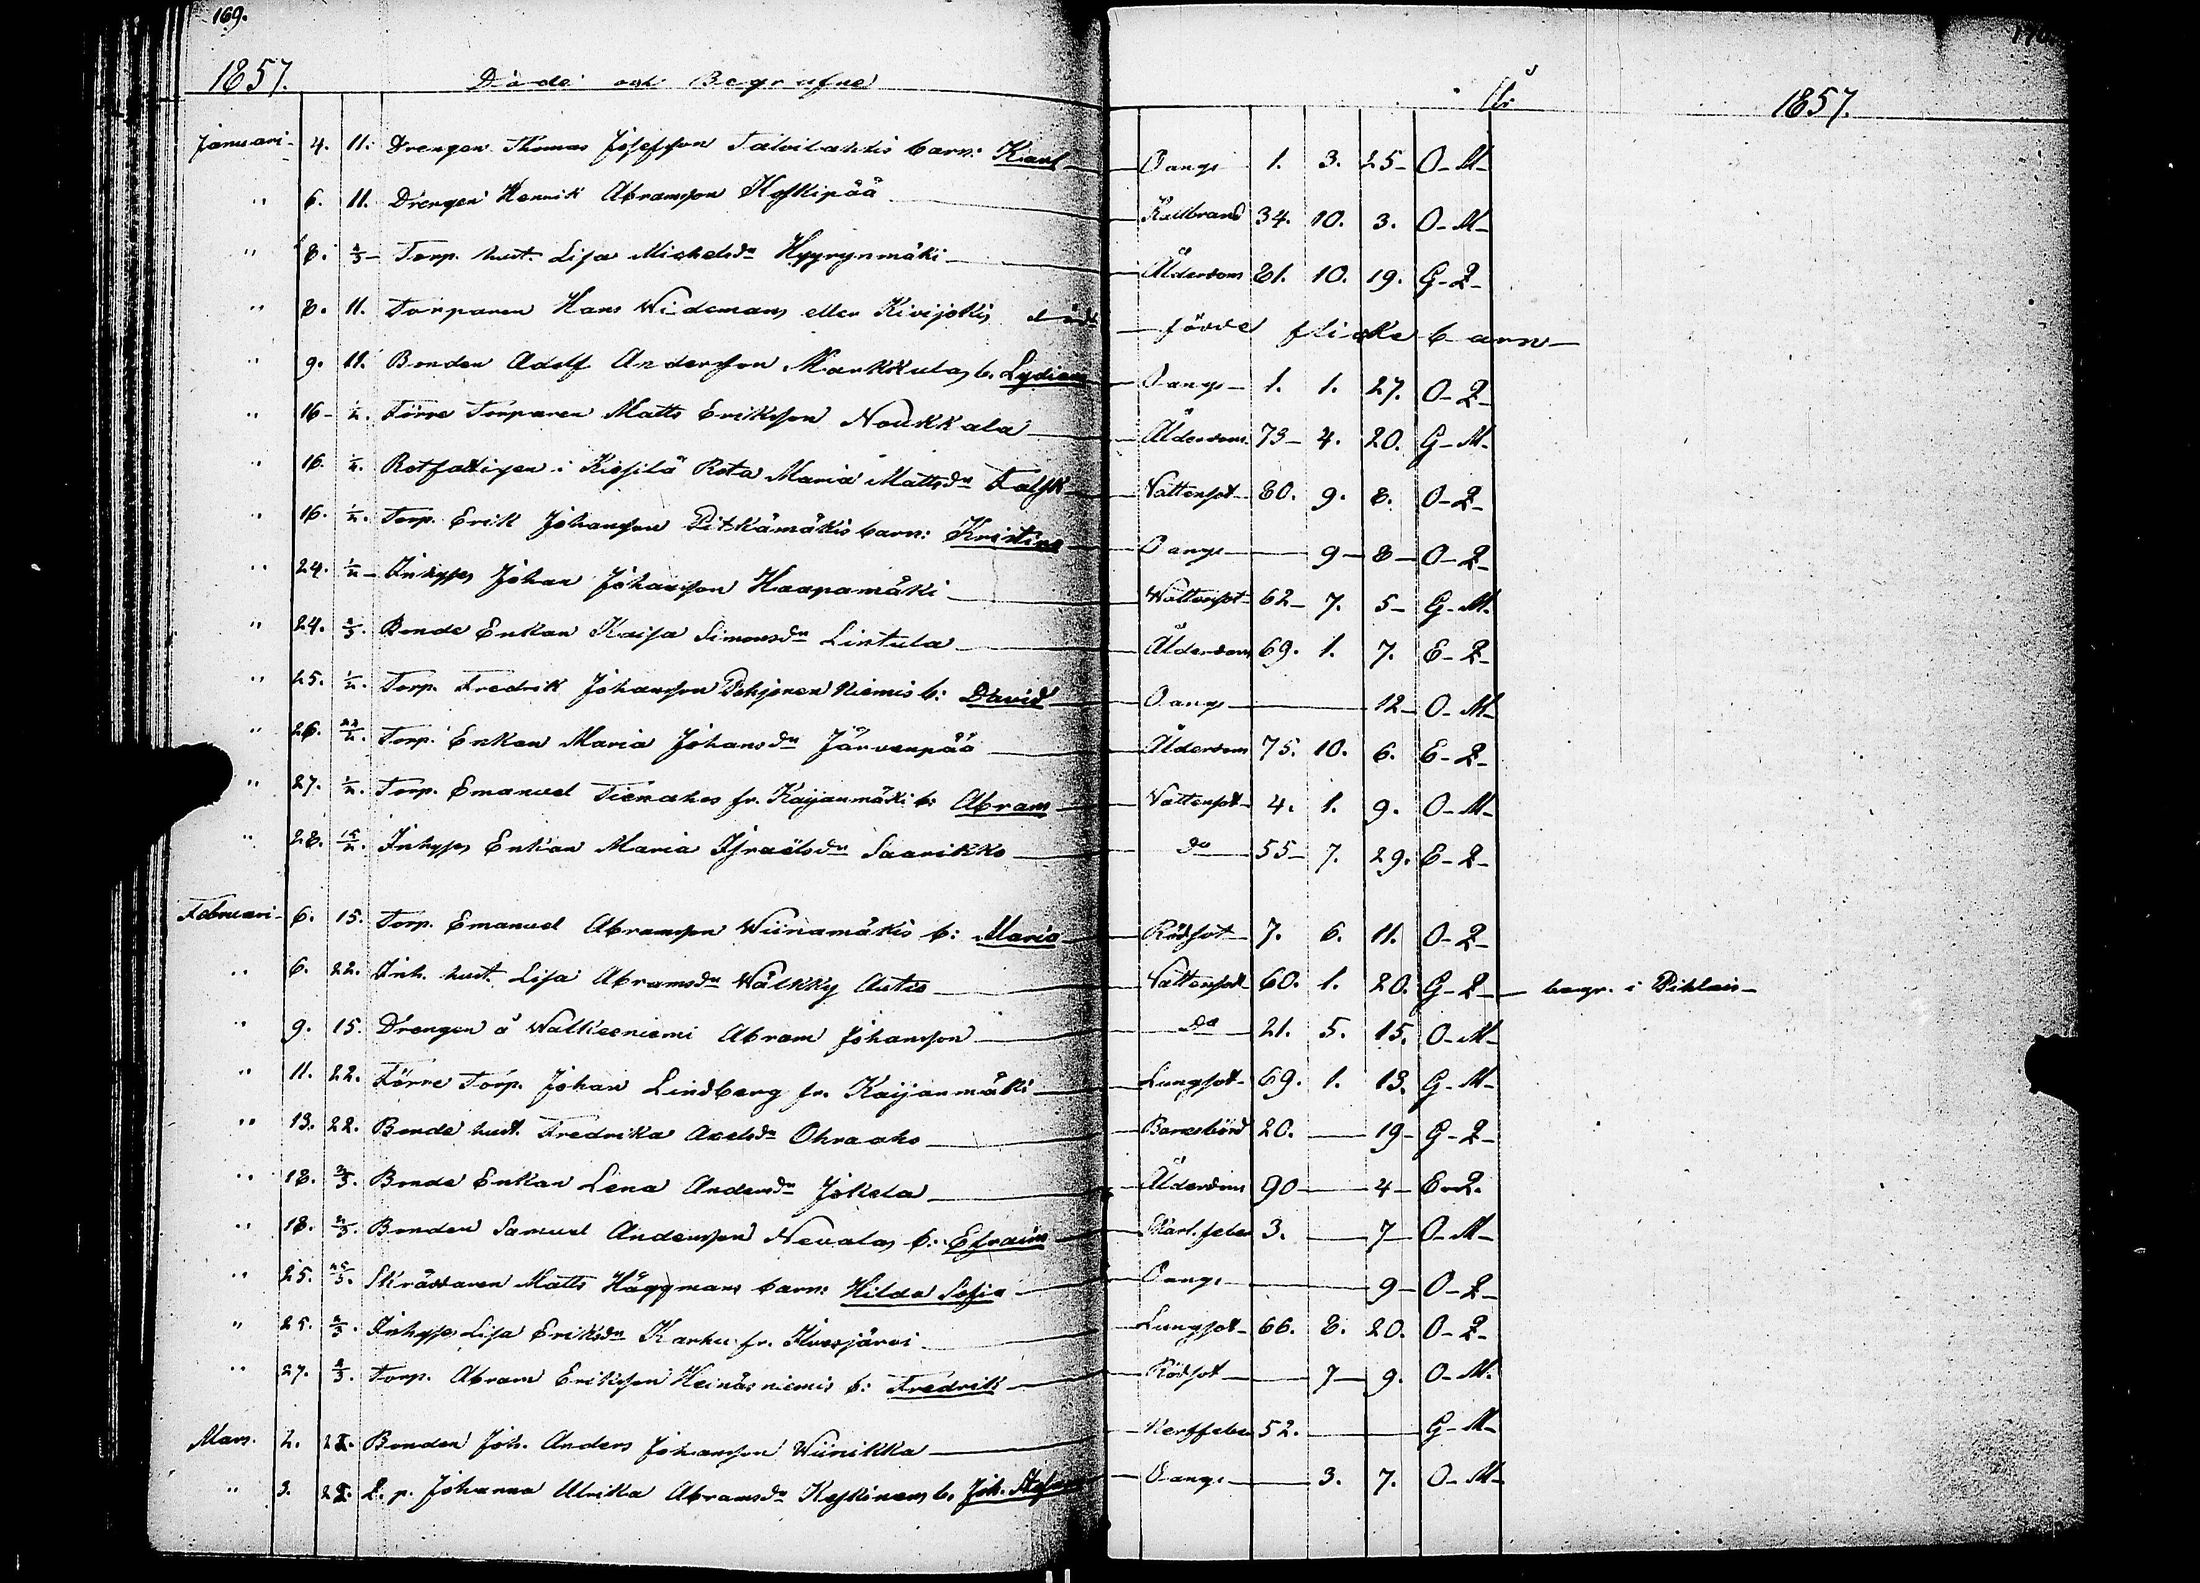 169. 170
1857. Döde och Begrafne År 1857.
Januari 4. 11. Drengen Thomas Josefsson Talvilahtis barn: Karl Oangn 1. 3. 25 O-M
" 6. 11. Drengen Henrik Abramsson Koskipää Kallbrand 34. 10. 3. O-M
" 8. 2/3 Torp. hust. Lisa Michelsdr Hyyrynmäki Ålderdom 81. 10. 19. G-Q
" 8. 11. Torparen Hans Widemans eller Kivijokis död födde flicke barn
" 9. 11. Bonden Adolf Andersson Markkulas b. Lydia Oangn 1. 1. 27. O-Q
" 16 1/2. Förre Torparen Matts Eriksson Noukkala Ålderdom 73 4. 20. G-M
" 16. 1/2. Rotfattigen i Kiesilä Rota Maria Mattsdr Falsk Vattensot 80. 9. 8. O-Q
" 16. 1/2. Torp. Erik Johansson Pitkämäkis barn: Kristina Oangn 9 8 O-Q
" 24. 1/2 Inhyses Johan Johansson Haapamäki Wattensot 62 7. 5 G-M
" 24. 2/3. Bonde Enkan Kaisa Simonsdr Lintula Ålderdom 69. 1. 7. E-Q
" 25. 1/2. Torp. Fredrik Johansson Pohjonen Niemis b: David Oangn 12 O-M
" 26. 22/2. Torp. Enkan Maria Johansdr Järvenpää Ålderdom 75. 10. 6. E-Q
" 27. 1/2. Torp. Emanuel Tienahos fr. Kaijanmäki b: Abram Vattensot 4. 1. 9. O-M
" 28. 15/2. Inhyses Enkan Maria Israelsdr Saarikko do 55 7. 29. E-Q
Februari 6. 15. Torp. Emanuel Abramsson Wiinamäkis b: Maria Rödsot 7. 6. 11. O-Q
" 6. 22. Inh. hust. Lisa Abramsdr Wälkky Autio Vattensot 60. 1. 20. G-Q begr. i Pihlais
" 9. 15. Drengen å Walkeeniemi Abram Johansson do 21. 5. 15. O-M
" 11. 22. Förre Torp. Johan Lindberg fr. Kaijanmäki Lungsot 69. 1. 13. G-M
" 13. 22. Bonde hust. Fredrika Axelsdr Ohraaho Barnsbörd 20. 19 G-Q
" 18. 2/3. Bonde Enkan Lena Andersdr Jokela Ålderdom 90 4 E-Q.
" 18. 2/3. Bonden Samuel Andersson Nevalas b: Efraim Skarl. feber 3. 7 O-M
" 25. 15/3. Skräddaren Matts Häggmans barn: Hilda Sofia Oangn 9 O-Q
" 25. 2/3. Inhyses Lisa Eriksdr Karhu fr. Ilvesjärvi Lungsot 66. 8. 20. O-Q
" 27. 2/3. Torp. Abram Eriksson Heinäsniemis b: Fredrik Rödsot 7 9. O-M.
Mars. 2. Bonden Joh. Anders Johansson Wiinikka Nerffeber 52. G-M
" 3. L. p. Johanna Ulrika Abramsdr Keskinens b. Joh. Stefan Oangn 3. 7. O-M